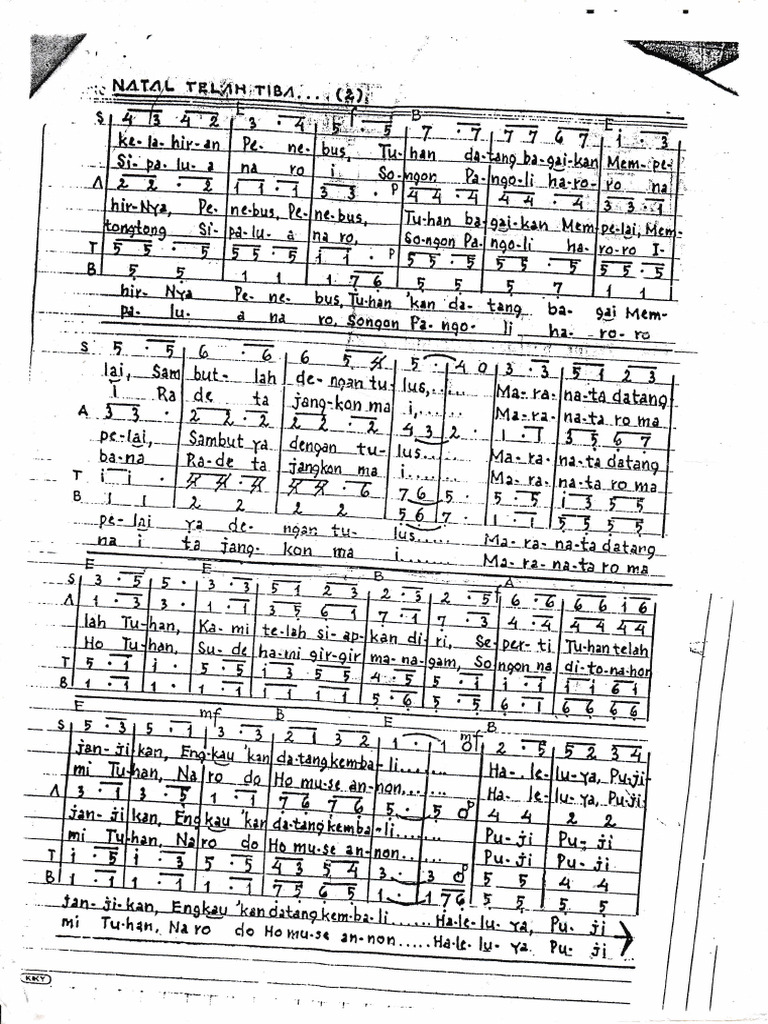 NATAL TELAH TIBA.... (2).
E B E
S 4 3 4 2 3 · 4 5 · 5 7 · 7 7 7 6 7 i · 3
ke-la-hir-an Pe- ne- bus, Tu- han da-tang ba-gai-kan Mem-pe-
Si-pa-lu-a na ro i So- ngon Pa-ngo-li ha-ro- ro na
A 2 2 · 2 1 1 · 1 3 3 · P 4 4 · 4 4 4 · 4 3 3 · 1
hir-Nya, Pe- ne-bus, Pe- ne-bus, Tu-han ba-gai-kan Mem- pe-lai, Mem-
tongtong Si- pa-lu-a na ro, So-ngon Pa-ngo-li ha- ro-ro I-
T 5 5 · 5 5 5 · 5 i i · P 5 5 · 5 5 5 · 5 5 5 · 5
B 5 5 1 1 1 7 6 5 5 5 7 1 1
hir- Nya Pe- ne- bus, Tu-han 'kan da- tang ba- gai Mem-
pa- lu- a na ro, Songon Pa- ngo- li ha- ro- ro
S 5 · 5 6 · 6 6 5 4 5 · 4 0 3 · 3 5 1 2 3
lai, Sam but- lah de-ngan tu- lus,...... Ma-ra- na-ta datang
i Ra de ta jang-kon ma i,...... Ma-ra- na-ta ro ma
A 3 3 · 2 2 · 2 2 2 · 2 4 3 2 · 1 · 1 3 5 6 7
pe-lai, Sambut ya dengan tu- lus..... Ma-ra- na-ta datang
ba-na Ra-de ta jangkon ma i...... Ma-ra- na-ta ro ma
T i i · 4 4 · 4 4 4 · 6 7 6 5 · 5 · 5 i 3 5 5
B 1 1 2 2 2 2 5 6 7 · 1 · 1 5 5 5 5
pe-lai ya de- ngan tu- lus..... Ma-ra- na-ta datang
na i ta jang- kon ma i...... Ma-ra-na-ta ro ma
E E B A
S 3 · 5 5 · 3 · 3 5 1 2 3 2 · 3 2 · 5 6 · 6 6 6 1 6
A 1 · 3 3 · 1 · 1 3 5 6 1 7 · 1 7 · 3 4 · 4 4 4 4 4
lah Tu-han, Ka-mi te-lah si-ap- kan di-ri, Se-per-ti Tuhan telah
Ho Tu-han, Su-de ha-mi gir-gir ma-na-gam, So-ngon na di-to-na-hon
T 5 · i i · 5 · 5 i 3 5 5 4 · 5 5 · i i · i i i 6 i
B 1 · 1 1 · 1 · 1 1 1 1 1 5 · 6 5 · 5 6 · 1 6 6 6 6
E mf B E mf B
S 5 · 3 5 · 1 3 · 3 2 1 3 2 1 · 1 0 2 · 5 5 2 3 4
jan-ji kan, Engkau 'kan da-tang kem-ba- li....... Ha- le- lu-ya, Pu-ji
mi Tu-han, Na ro do Ho mu-se an- non....... Ha- le- lu-ya, Pu-ji
A 3 · 1 3 · 5 1 · 1 7 6 7 6 5 · 5 0 4 4 2 2
jan-ji kan, Engkau 'kan da-tang kem-ba- li....... Pu- ji Pu- ji
mi Tu-han, Na ro do Ho mu-se an- non....... Pu- ji Pu- ji
T i · 5 i · 3 5 · 5 4 3 5 4 3 · 3 0 5 5 4 4
B 1 · 1 1 · 1 1 · 1 7 5 6 5 1 · 1 7 6 5 5 5 5
jan-ji-kan, Engkau 'kan datang kem-ba-li...... Ha-le-lu-ya, Pu- ji
mi Tu-han, Na ro do Ho mu-se an-non..... Ha-le-lu-ya Pu- ji
KKY